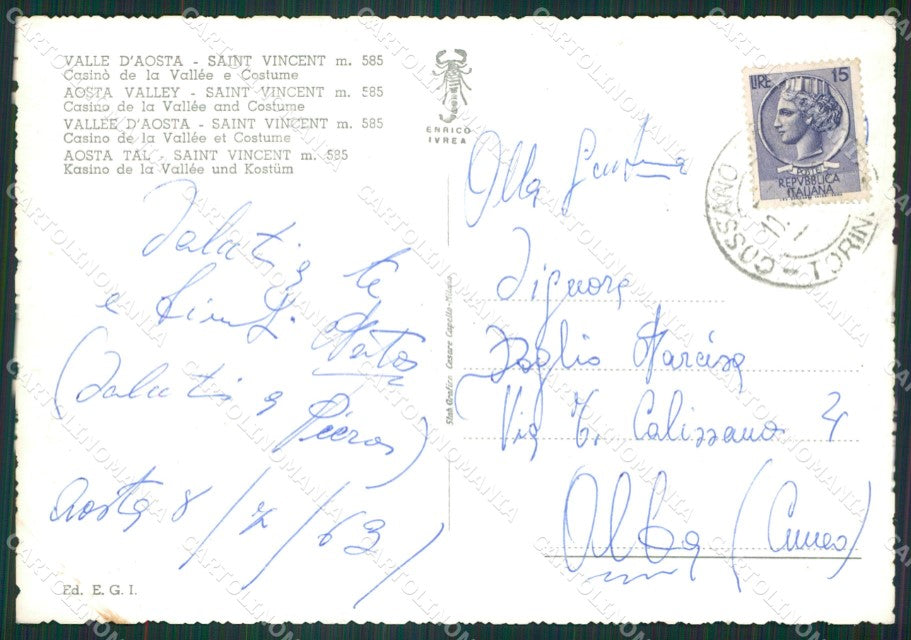 VALLE D'AOSTA - SAINT VINCENT m. 585
Casinò de la Vallée e Costume
AOSTA VALLEY - SAINT VINCENT m. 585
Casino de la Vallée and Costume
VALLÉE D'AOSTA - SAINT VINCENT m. 585
Casino de la Vallée et Costume
AOSTA TAL - SAINT VINCENT m. 585
Kasino de la Vallée und Kostüm
ENRICO
IVREA
LIRE 15
POSTE
REPVBBLICA
ITALIANA
COSSANO - TORINO
Saluti a te
e
(Saluti a
Piera)
Aosta 8/7/63
Ed. E. G. I.
Stab. Grafico Cesare Capello - Milano
Alla
Signora
Narcisa
Via T. Calissano 4
Alba (Cuneo)
CARTOLINOMANIA